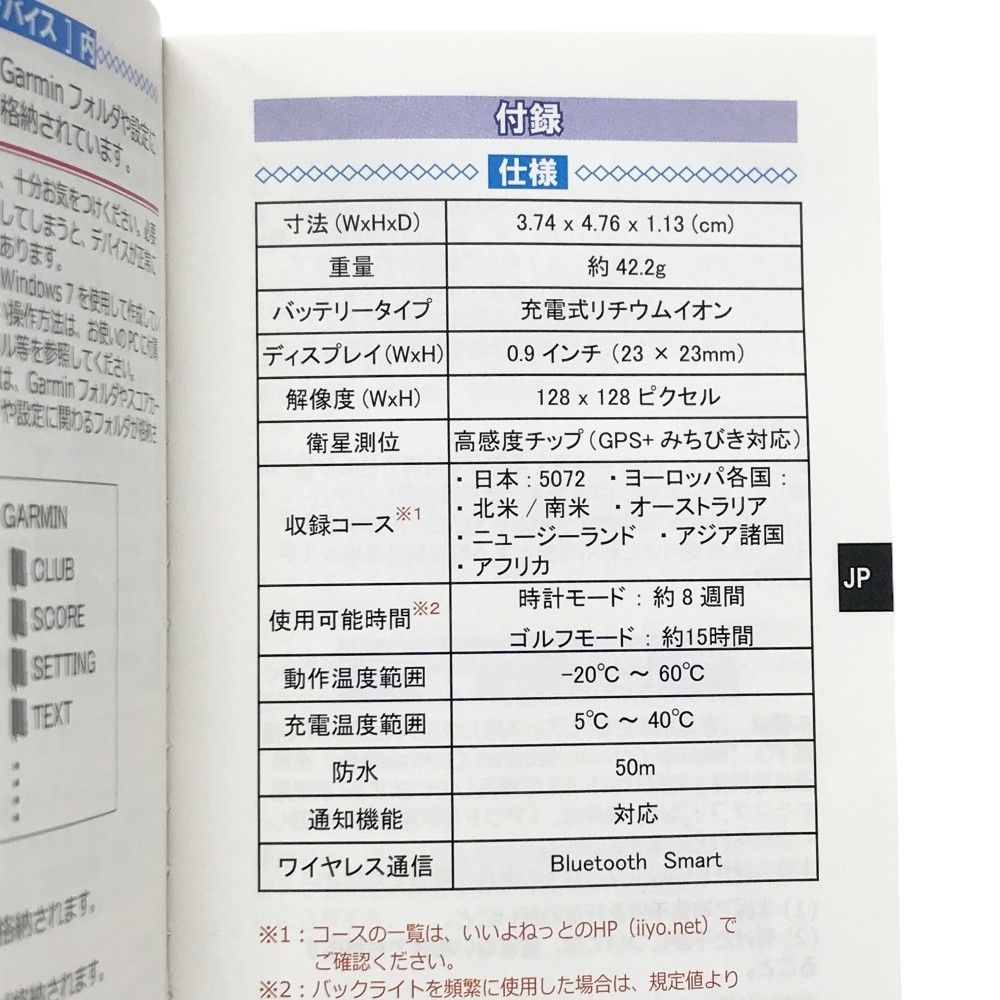 バイス ] 内
Garmin フォルダや設定に
格納されています。
、十分お気をつけください。必要
してしまうと、デバイスが正常に
あります。
Windows 7 を使用して作成してい
い操作方法は、お使いの PC に付属
ル等を参照してください。
は、Garmin フォルダやスコアカー
や設定に関わるフォルダが格納さ
GARMIN
CLUB
SCORE
SETTING
TEXT
格納されます。
格納されます。
付録
仕様
寸法 (WxHxD) 3.74 x 4.76 x 1.13 (cm)
重量 約 42.2g
バッテリータイプ 充電式リチウムイオン
ディスプレイ (WxH) 0.9 インチ (23 × 23mm)
解像度 (WxH) 128 x 128 ピクセル
衛星測位 高感度チップ (GPS+ みちびき対応)
収録コース※1 ・日本 : 5072 ・ヨーロッパ各国 :
・北米 / 南米 ・オーストラリア
・ニュージーランド ・アジア諸国
・アフリカ
使用可能時間※2 時計モード : 約 8 週間
ゴルフモード : 約15時間
動作温度範囲 -20℃ ～ 60℃
充電温度範囲 5℃ ～ 40℃
防水 50m
通知機能 対応
ワイヤレス通信 Bluetooth Smart
JP
※1 : コースの一覧は、いいよねっとのHP（iiyo.net）で
ご確認ください。
※2 : バックライトを頻繁に使用した場合は、規定値より